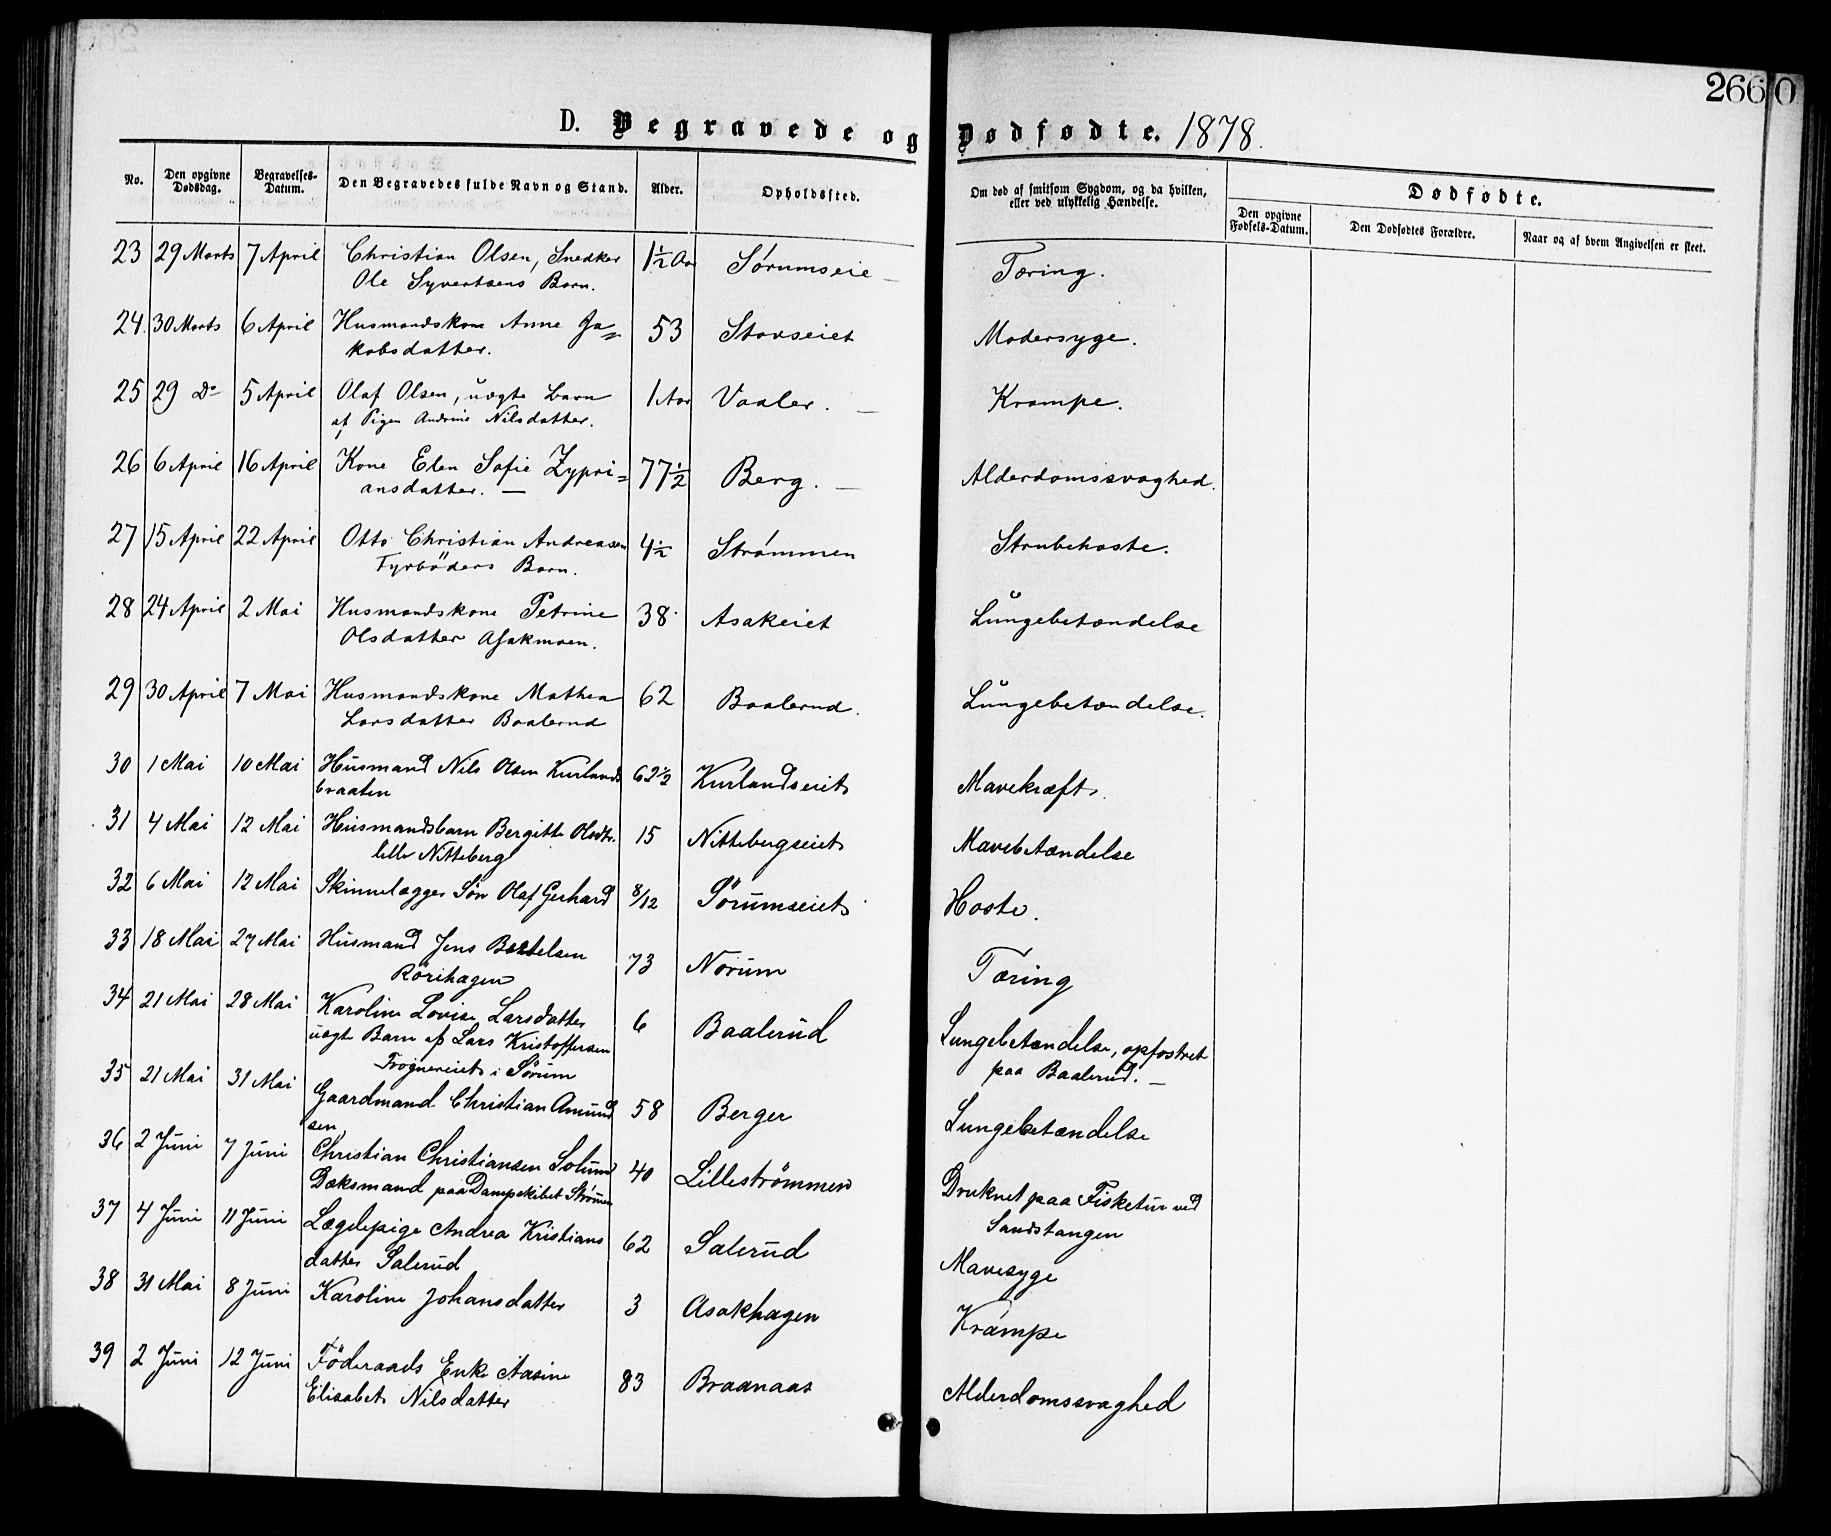 266
0
D. Begravede og Dødfødte. 1878.
No. Den opgivne Dødsdag. Begravelses-Datum. Den Begravedes fulde Navn og Stand. Alder. Opholdssted. Om død af smitsom Sygdom, og da hvilken, eller ved ulykkelig Hændelse. Dødfødte.
Den opgivne Fødsels-Datum. Den Dødfødtes Forældre. Naar og af hvem Angivelsen er skeet.
23 29 Marts 7 April Christian Olsen, Snedker 1½ Aar Sørumseie Tæring.
Ole Syvertsens Barn.
24. 30 Marts 6 April Husmandskone Anne Ja= 53 Stavseiet Modersyge.
kobsdatter.
25 29 Do 5 April Olaf Olsen, uægte Barn 1 Aar Vaaler. Krampe.
af Pigen Andrine Nilsdatter.
26 6 April 16 April Kone Elen Sofie Zypri= 77½ Berg. Alderdomssvaghed.
ansdatter.
27 15 April 22 April Otto Christian Andreasen 4½ Strømmen Strubehoste.
Fyrbøders Barn.
28 24 April 2 Mai Husmandskone Petrine 38. Asakeiet Lungebetændelse
Olsdatter Asakmoen.
29 30 April 7 Mai Husmandskone Mathea 62 Baalerud. Lungebetændelse.
Larsdatter Baalerud
30 1 Mai 10 Mai Husmand Nils Olsen Kurlands 62½ Kurlandseiet Mavekræft.
braaten
31 4 Mai 12 Mai Husmandsbarn Bergitte Olsdtr. 15 Nittebergseiet Mavebetændelse
lille Nitteberg
32 6 Mai 12 Mai Skinnelægger Søn Olaf Gerhard 8/12 Sørumseiet Hoste.
33 18 Mai 27 Mai Husmand Jens Bertelsen 73 Norum Tæring
Rörihagen
34 21 Mai 28 Mai Karoline Lovise Larsdatter 6 Baalerud Lungebetændelse, opfostret
uægte Barn af Lars Kristoffersen paa Baalerud.
Trognereiet i Sørum
35 21 Mai 31 Mai Gaardmand Christian Amund 58 Berger Lungebetændelse
sen
36 2 Juni 7 Juni Christian Christiansen Solund 40 Lilleströmmen Druknet paa Fisketur ved
Dæksmand paa Dampskibet Strømen Sandstangen
37 4 Juni 11 Juni Lægdepige Andrea Kristians 62 Salerud Mavesyge
datter Salerud
38 31 Mai 8 Juni Karoline Johansdatter 3 Asakhagen Krampe
39 2 Juni 12 Juni Föderaads Enke Aasine 83 Braanaas Alderdomssvaghed
Elisabet Nilsdatter